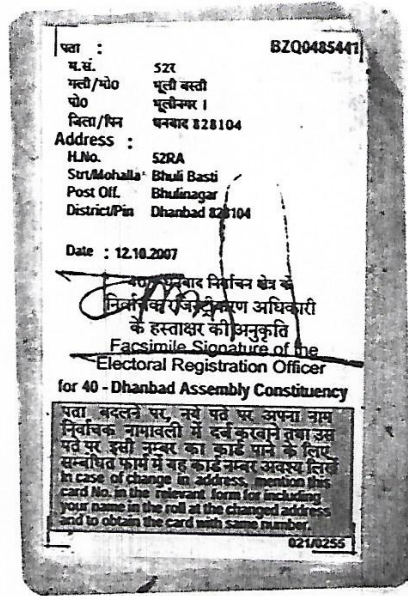 पता : BZQ0485441
म.सं. 52र
गली/मो0 भूली बस्ती
पो0 भूलीनगर ।
जिला/पिन धनबाद 828104
Address :
H.No. 52RA
Strt/Mohalla Bhuli Basti
Post Off. Bhulinagar
District/Pin Dhanbad 828104
Date : 12.10.2007
40 धनबाद निर्वाचन क्षेत्र के
निर्वाचक रजिस्ट्रीकरण अधिकारी
के हस्ताक्षर की अनुकृति
Facsimile Signature of the
Electoral Registration Officer
for 40 - Dhanbad Assembly Constituency
पता बदलने पर, नये पते पर अपना नाम
निर्वाचक नामावली में दर्ज करवाने तथा उस
पते पर इसी नम्बर का कार्ड पाने के लिए
सम्बंधित फार्म में यह कार्ड नम्बर अवश्य लिखें
In case of change in address, mention this
card No. in the relevant form for including
your name in the roll at the changed address
and to obtain the card with same number.
021/0255